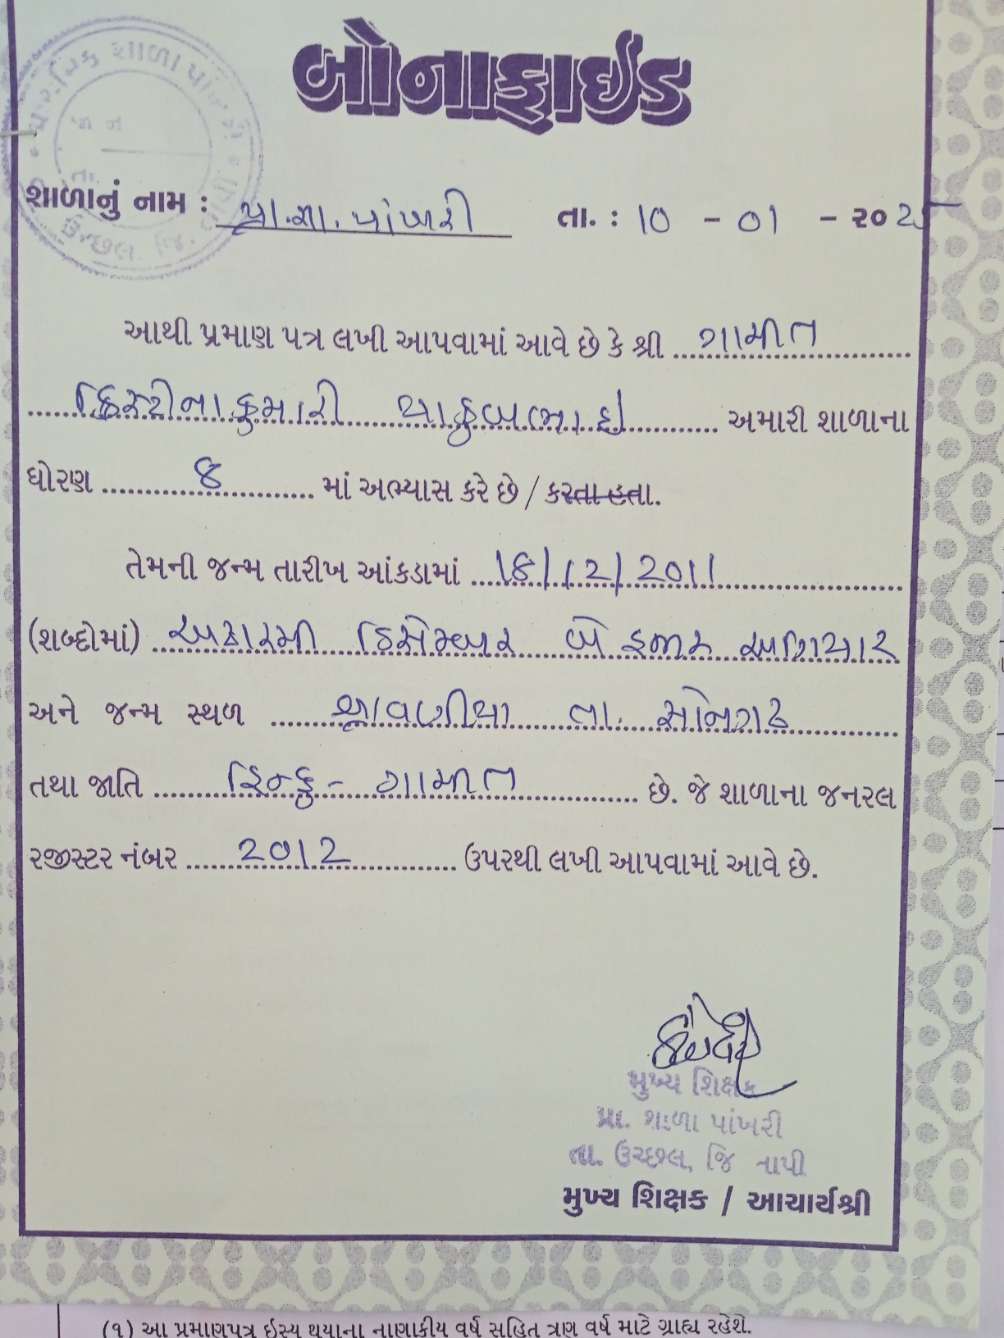 બોનાફાઈડ
શાળાનું નામ : પ્રા.શા. પાંખરી તા. : 10 - 01 - ૨૦25
આથી પ્રમાણ પત્ર લખી આપવામાં આવે છે કે શ્રી ગામીત
ક્રિસ્ટીનાકુમારી યાકુબભાઈ અમારી શાળાના
ધોરણ 8 માં અભ્યાસ કરે છે / કરતા હતા.
તેમની જન્મ તારીખ આંકડામાં 18/12/2011
(શબ્દોમાં) અઢારમી ડિસેમ્બર બે હજાર અગિયાર
અને જન્મ સ્થળ શ્રાવણીયા તા. સોનગઢ
તથા જાતિ હિન્દુ - ગામીત છે. જે શાળાના જનરલ
રજીસ્ટર નંબર 2012 ઉપરથી લખી આપવામાં આવે છે.
મુખ્ય શિક્ષક
પ્રા. શાળા પાંખરી
તા. ઉચ્છલ, જિ તાપી
મુખ્ય શિક્ષક / આચાર્યશ્રી
(૧) આ પ્રમાણપત્ર ઇસ્યુ થયાના નાણાકીય વર્ષ સહિત ત્રણ વર્ષ માટે ગ્રાહ્ય રહેશે.